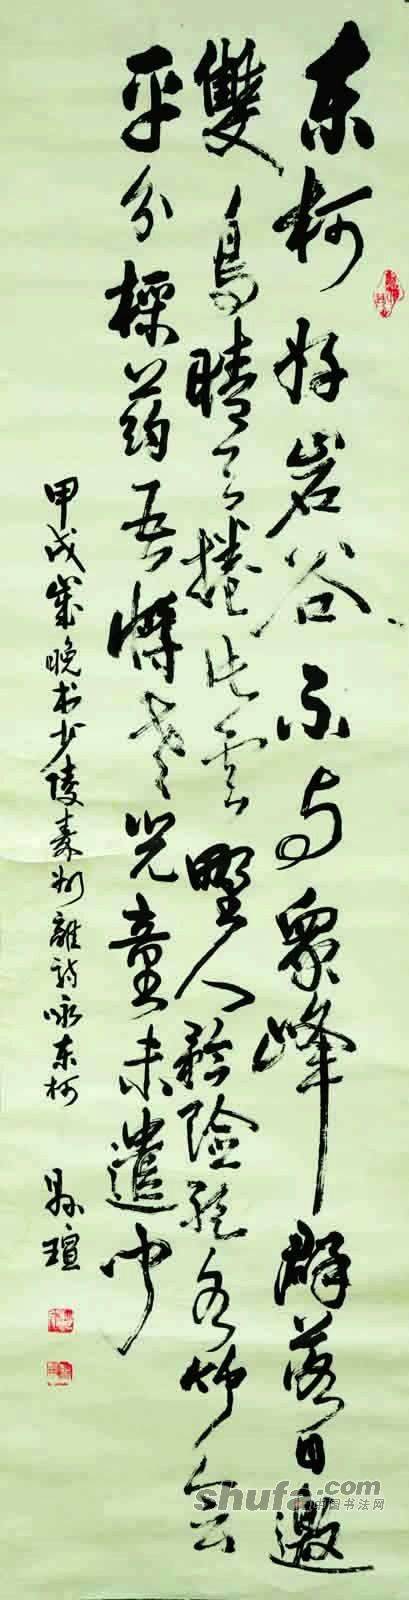 东柯好岩谷不与眾峰群落日邀
雙鸟晴天捲片雲野人矜险绝水竹会
平分採药吾将老兒童未遣闻
甲戌岁晚书少陵秦州雜诗咏东柯
瑄
shufa.com
中国书法网